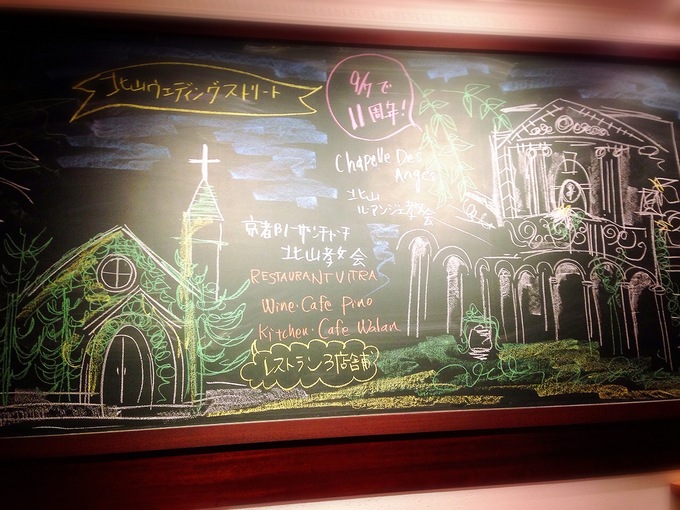 北山ウェディングストリート
9/7で
11周年!
Chapelle Des
Anges
北山
ルアンジェ教会
京都ノーザンチャーチ
北山教会
RESTAURANT VITRA
Wine・Cafe Pino
Kitchen・Cafe Walan
レストラン3店舗